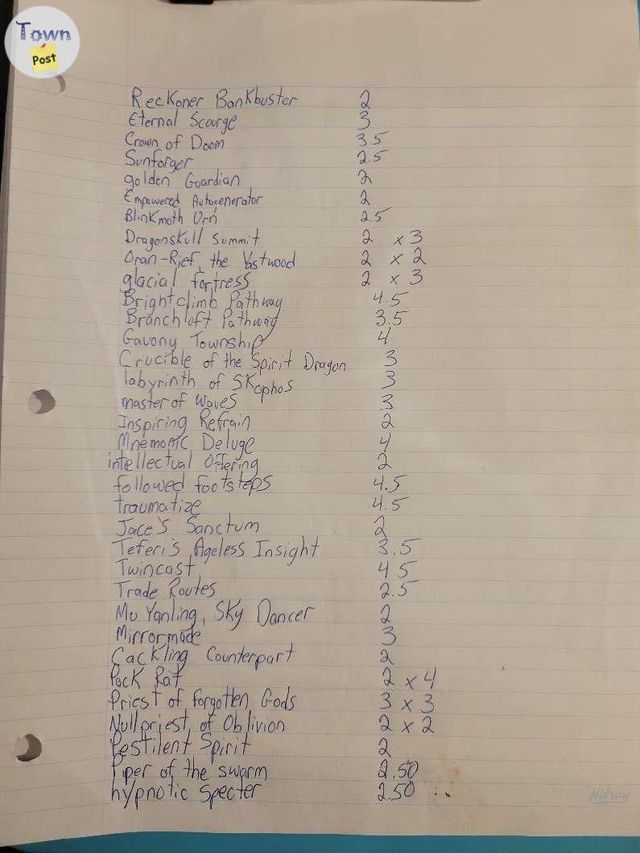 Town
Post
Reckoner Bankbuster 2
Eternal Scourge 3
Crown of Doom 3.5
Sunforger 2.5
golden Guardian 2
Empowered Autogenerator 2
Blinkmoth Urn 2.5
Dragonskull Summit 2 x 3
Oran-Rief, the Vastwood 2 x 2
glacial fortress 2 x 3
Brightclimb Pathway 4.5
Branchloft Pathway 3.5
Gavony Township 4
Crucible of the Spirit Dragon 3
labyrinth of Skophos 3
master of waves 3
Inspiring Refrain 2
Mnemonic Deluge 4
intellectual Offering 2
followed footsteps 4.5
traumatize 4.5
Jace's Sanctum 2
Teferi's Ageless Insight 3.5
Twincast 4.5
Trade Routes 2.5
Mu Yanling, Sky Dancer 2
Mirrormade 3
Cackling Counterpart 2
Pack Rat 2 x 4
Priest of forgotten Gods 3 x 3
Nullpriest of Oblivion 2 x 2
Pestilent Spirit 2
Piper of the swarm 2.50
hypnotic Specter 2.50
Hilroy